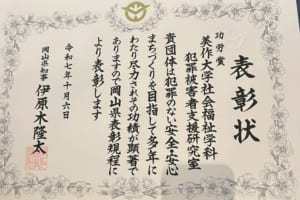 表彰状
功労賞
美作大学社会福祉学科
犯罪被害者支援研究室
貴団体は犯罪のない安全・安心
まちづくりを目指して多年に
わたり尽力されその功績が顕著で
ありますので岡山県表彰規程に
より表彰します
令和七年十月六日
岡山県知事 伊原木隆太